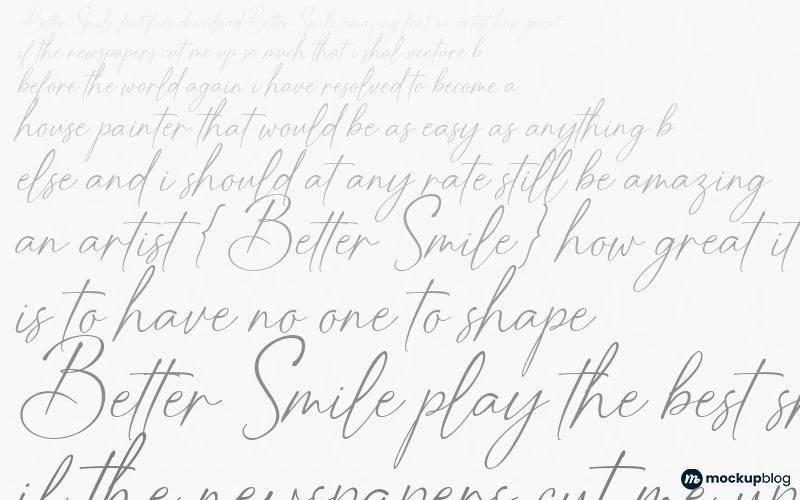 Better Smile font free download Better Smile amazing font an artist how great
if the newspapers cut me up so much that i shal venture b
before the world again i have resolved to become a
house painter that would be as easy as anything b
else and i should at any rate still be amazing
an artist { Better Smile } how great it
is to have no one to shape
Better Smile play the best
if the newspapers cut me up
mockupblog